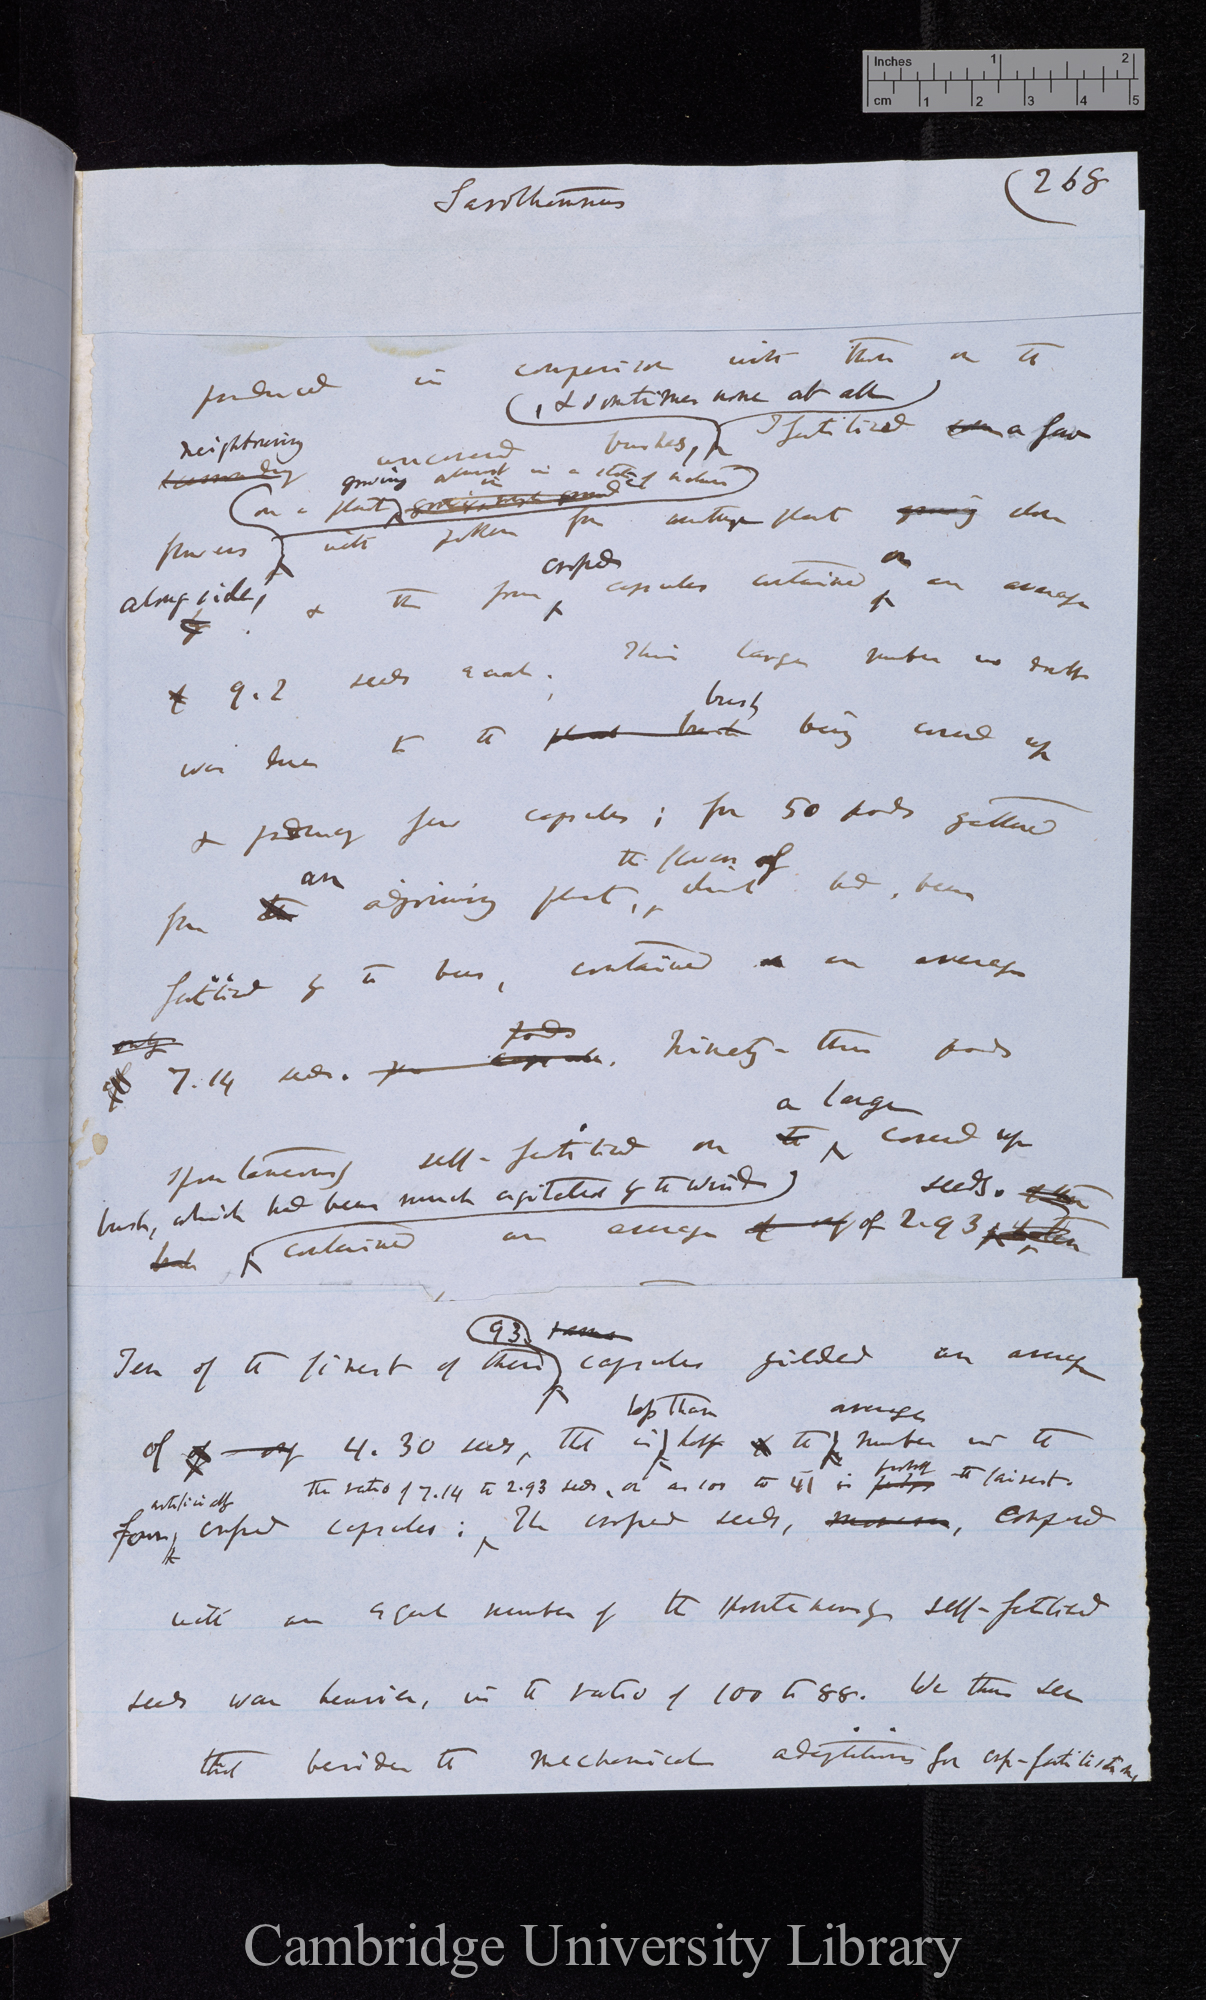 Inches 1 2
cm 1 2 3 4 5
Sarothamnus
(268
produced in comparison with those on the
(, & sometimes none at all)
neighbouring
surrounding uncovered bushes, I fertilised some a few
growing almost in a state of nature
(on a plant growing in
flowers with pollen from another plant growing close
crossed on
alongside, & the four capsules contained an average
of 9.2 seeds each. This large number no doubt
bush
was due to the plant bush being covered up
& producing few capsules; for 50 pods gathered
an the flowers of
from the adjoining plant, which had been
fertilised by the bees, contained an average
only pods
of 7.14 seeds. per capsule. Ninety-three pods
a large
spontaneously self-fertilised on the covered up
bush, which had been much agitated by the wind seeds.
bush contained an average of 2.93
93
Ten of the finest of these capsules yielded an average
less than average
of 4.30 seeds, that is half the number in the
the ratio of 7.14 to 2.93 seeds, or as 100 to 41 is the fairest.
artificially
four crossed capsules; The crossed seeds, compared
with an equal number of the spontaneously self-fertilised
seeds were heavier, in the ratio of 100 to 88. We thus see
that besides the mechanical adaptations for cross-fertilisation
Cambridge University Library